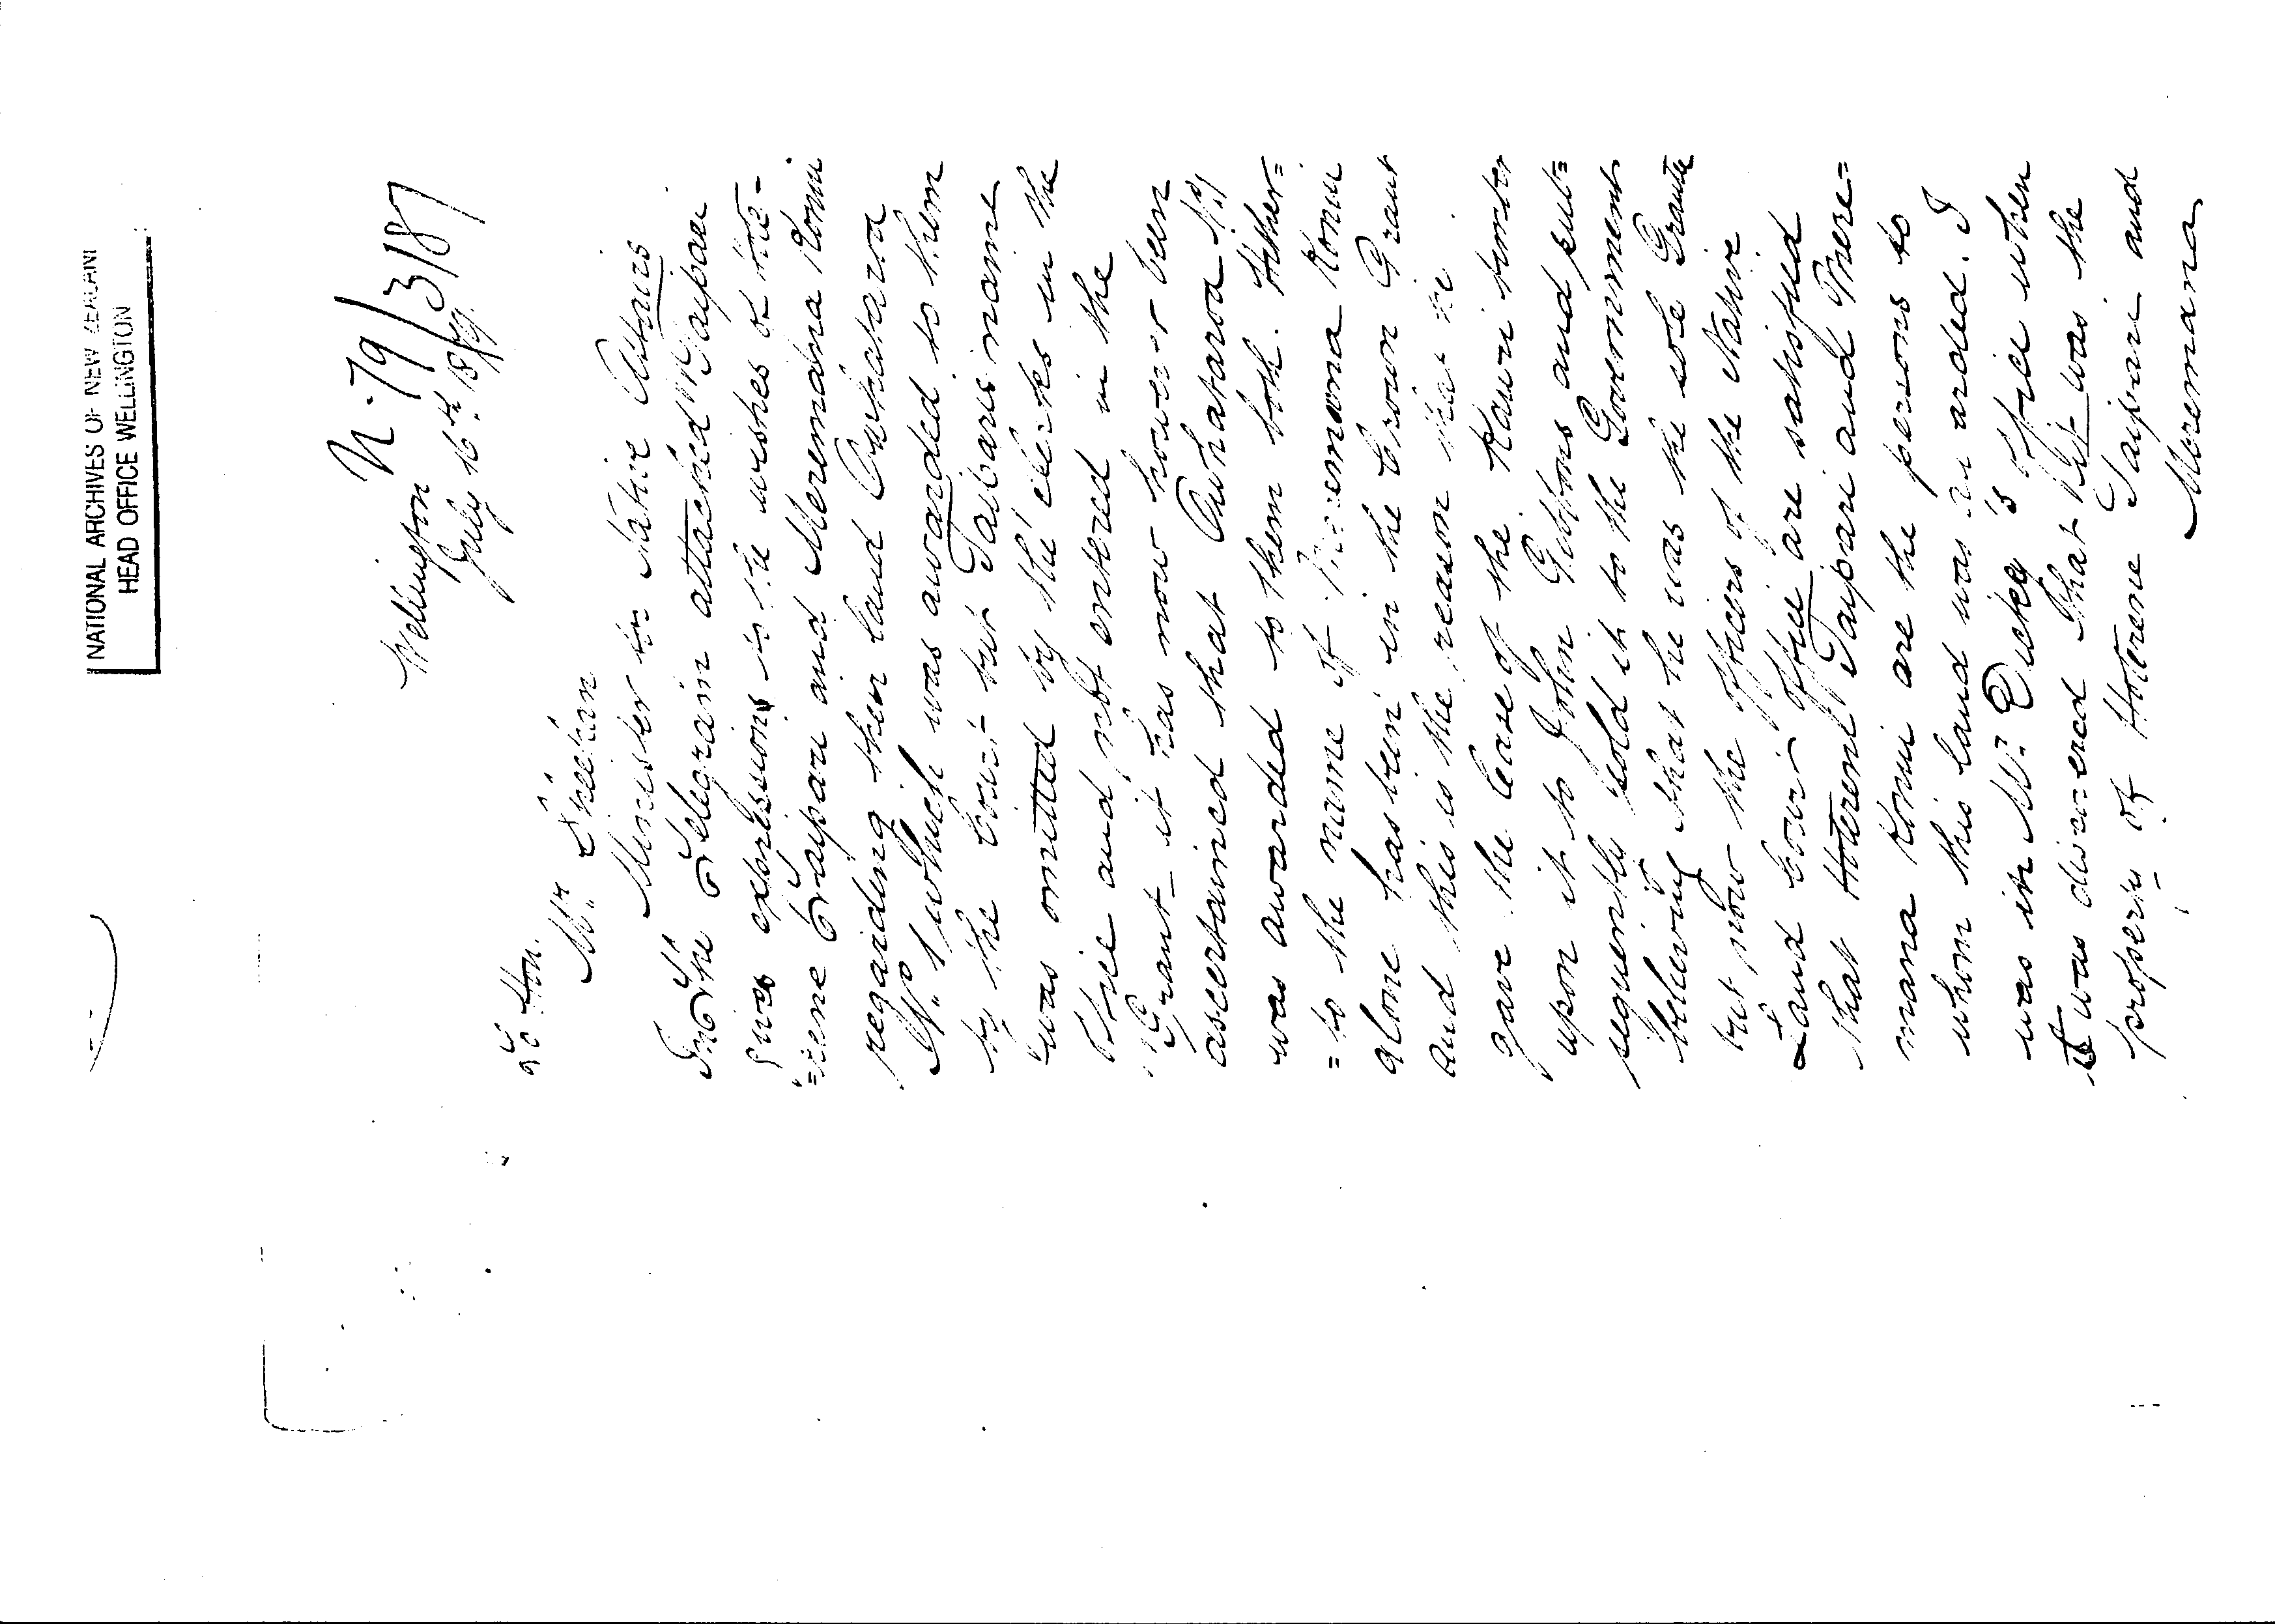 NATIONAL ARCHIVES OF NEW ZEALAND
HEAD OFFICE WELLINGTON
N. 79/3187
Wellington
July 16th 1879.
To Hon.
Mr. Sheehan
Minister for Native Affairs
The Telegram attached
gives expression to the wishes of Hote-
=rene Taipari and Meremana Konui
regarding their land Awhataroa
No. 1 which was awarded to them
by the Court but Taipari's name
was omitted by the clerks in the
Office and not entered in the
Grant - it has now however been
ascertained that Awhataroa No 1
was awarded to them both. Hither=
=to the name of Meremana Konui
alone has been in the Crown Grant
and this is the reason that he
gave the lease of the Kauri timber
upon it to John Gibbons and sub=
sequently sold it to the Government
believing that he was the sole Grantee
but now the officers of the Native
Land Court Office are satisfied
that Hoterene Taipari and Mere=
mana Konui are the persons to
whom this land was awarded. I
was in Mr. Dickey's office when
it was discovered that his was the
property of Hoterene Taipari and
Meremana